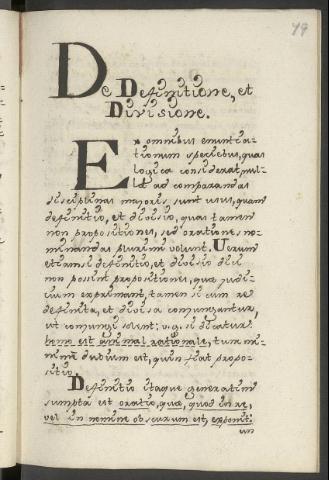 79
De Definitione, et
Divisione.
Ex omnibus enuntia-
tionum speciebus, quas
logica considerat, nul-
læ ad comparandas
disciplinas majoris sunt usus, quam
definitio, et divisio, quas tamen
non propositiones, sed orationes, no-
minandas plurimi volunt. Verum
etiamsi definitio, et divisio dici
non possint propositiones, quæ judi-
cium exprimant, tamen si cum re
definita, et divisa conjungantur,
ut conjungi solent: v.g. si dicatur
homo est animal rationale, tum mi-
nimè dubium est, quin fiat propo-
sitio.
Definitio itaque generatim
sumpta est oratio, quæ, quod in re,
vel in nomine obscurum est, exponit: